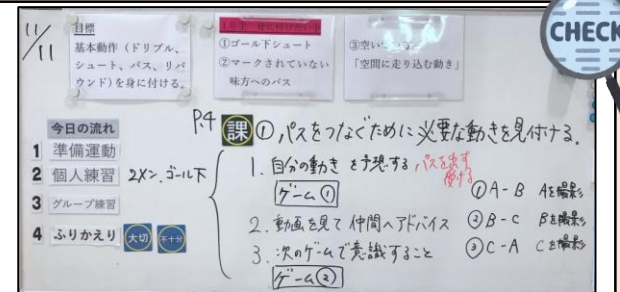 11/11
目標
基本動作（ドリブル、
シュート、パス、リバ
ウンド）を身に付ける。
①ゴール下シュート
②マークされていない
味方へのパス
③空い
「空間に走り込む動き」
CHECK
今日の流れ
1 準備運動
2 個人練習
3 グループ練習
4 ふりかえり 大切 不十分
2メン、ゴール下
P.4 課 ①パスをつなぐために必要な動きを見付ける。
1. 自分の動きを予想する パスを出す 受ける
ゲーム①
2. 動画を見て仲間へアドバイス
3. 次のゲームで意識すること
ゲーム②
①A-B Aを撮影
②B-C Bを撮影
③C-A Cを撮影